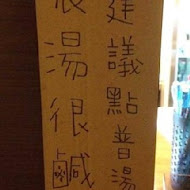 建議點普湯
濃湯很鹹